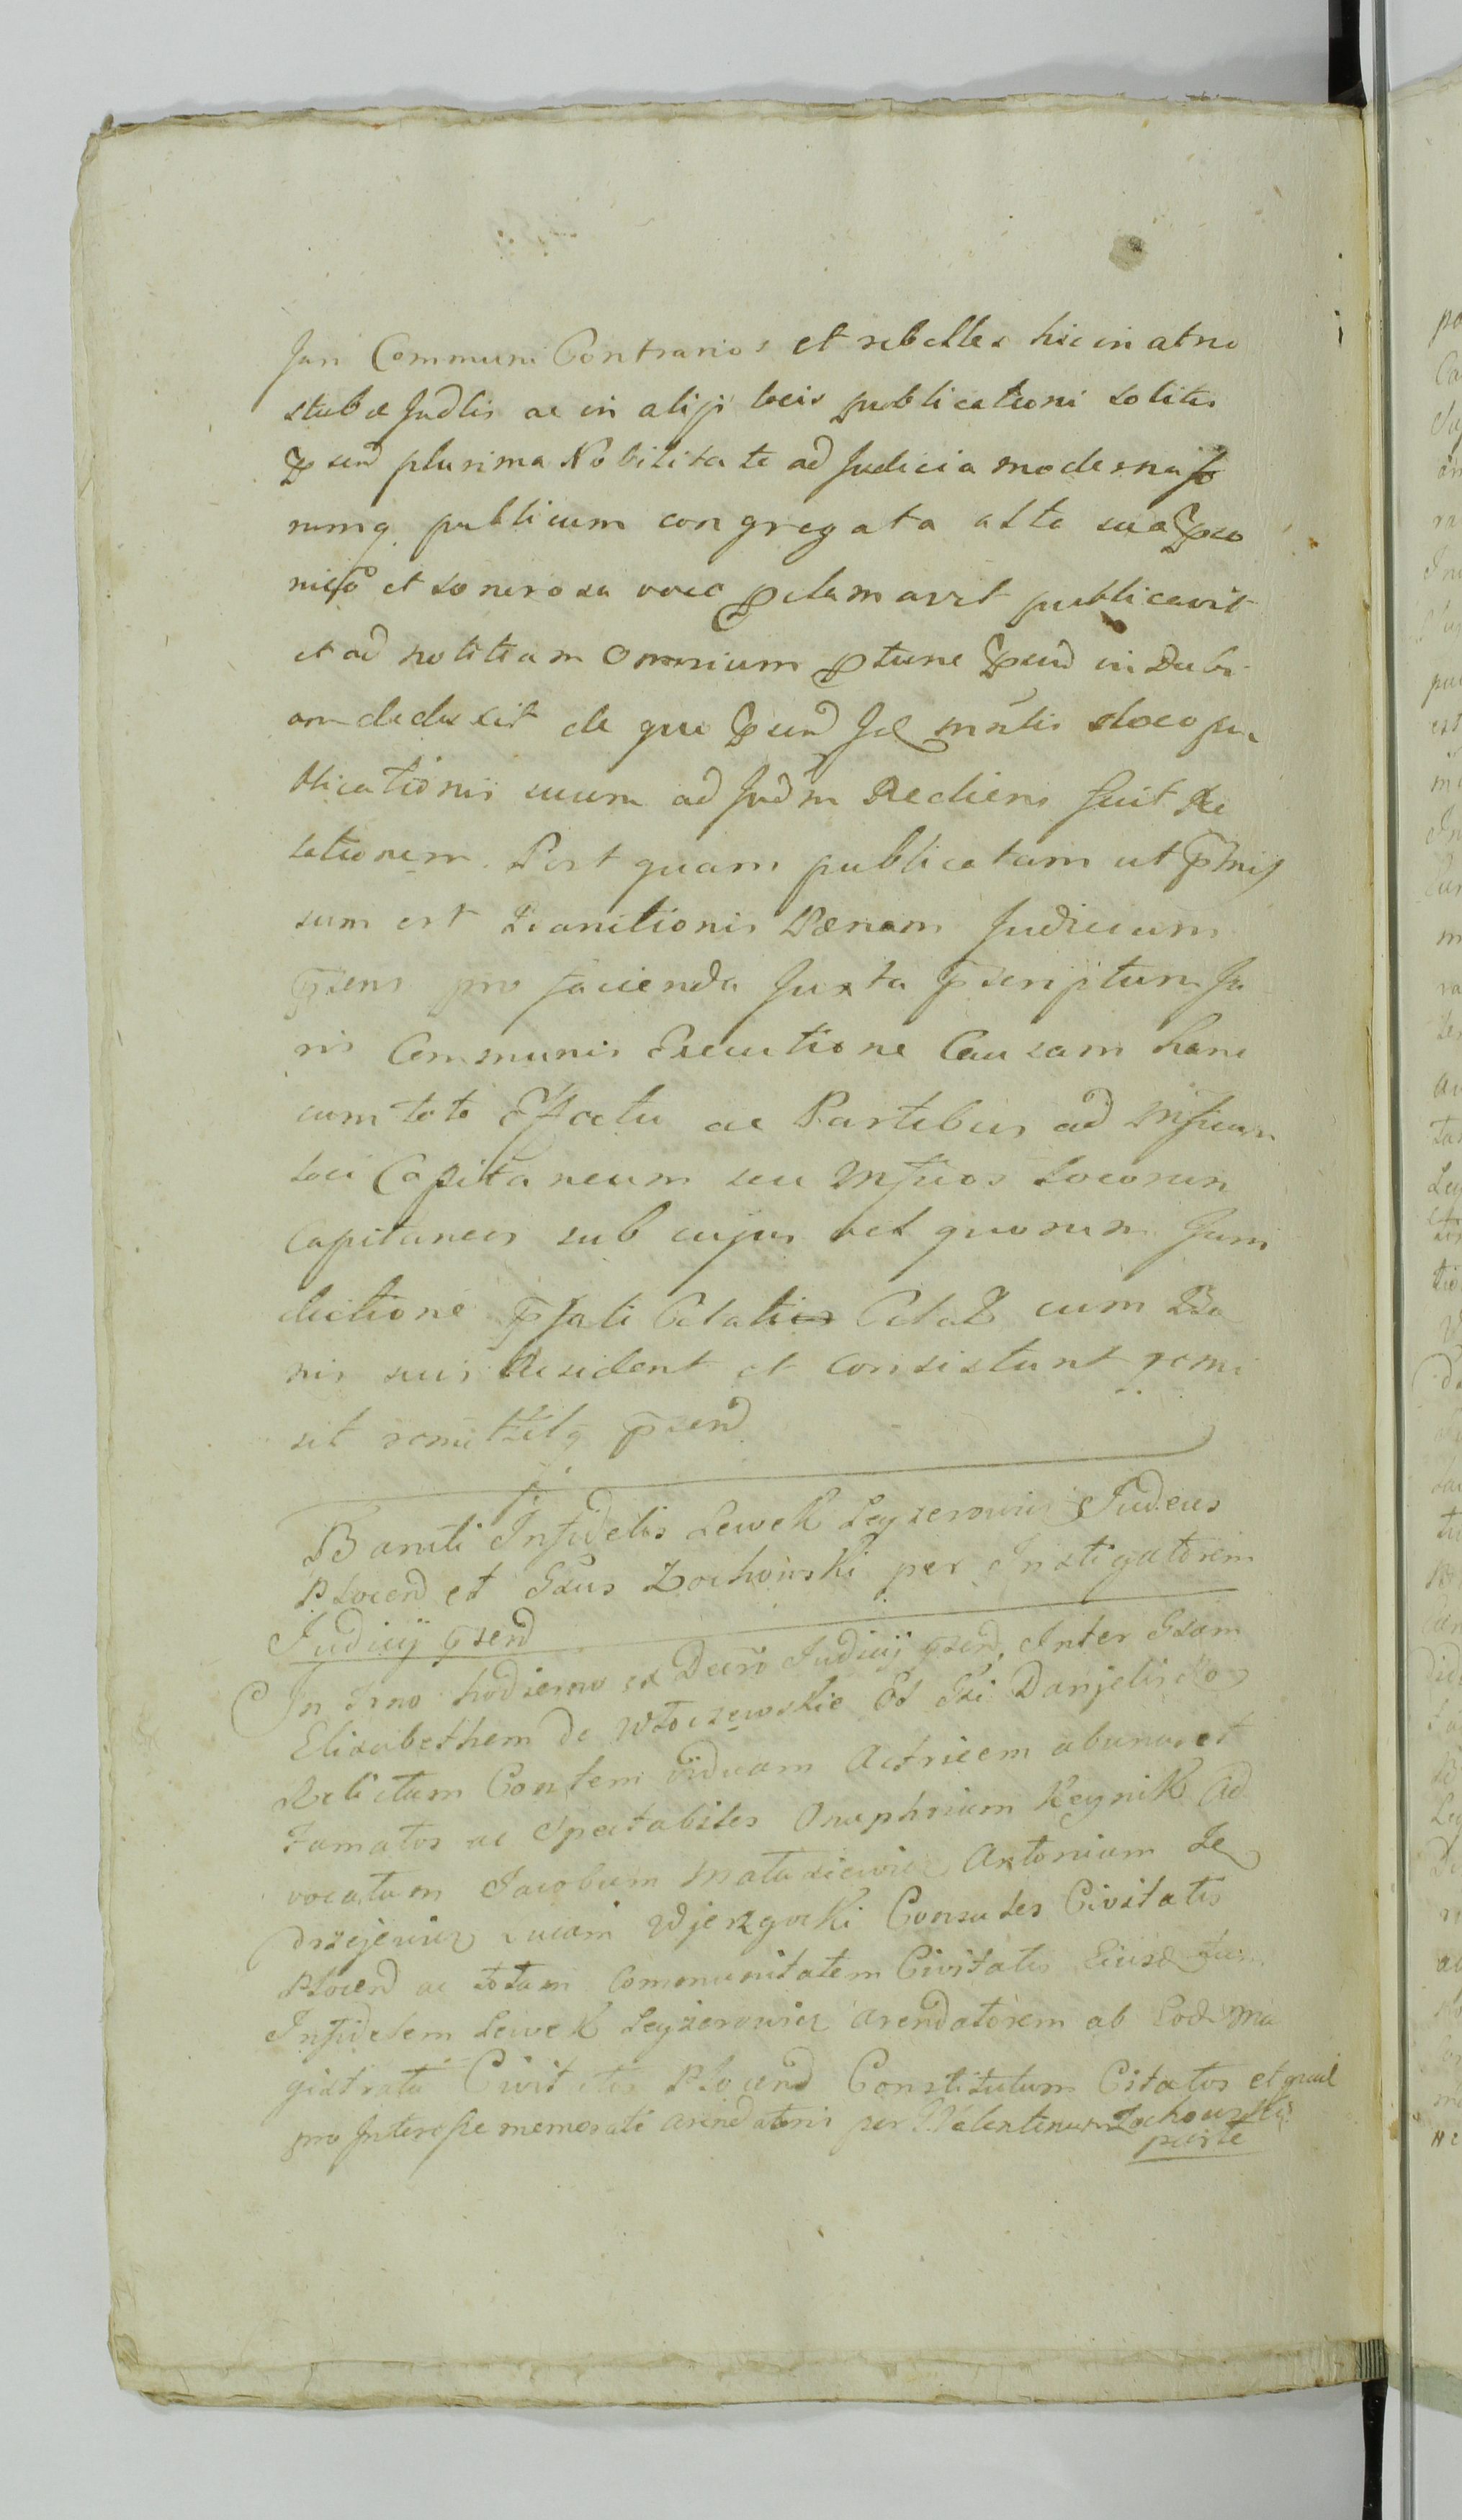 Juri Communi Contrarios et rebelles hic in atrio
stubæ Judlis ac in alijs locis publicationi solitis
pnd plurima Nobilitate ad Judicia moderna fo
rumq publicum congregata alta sua pro
et sonorosa voce pclamavit publicavit
et ad notitiam Omnium ptunc pnd in Dubi
am deduxit de quo pnd loco pu
blicationis suum ad Judm Rediens fecit Re
lationem. Post quam publicatam ut pmis
sum est Banitionis Pænam Judicium
psens pro facienda Juxta pscriptum Ju
ris Communis Executione Causam hanc
cum toto Effectu ac Partibus ad Mfficum
loci Capitaneum seu Mfficos Locorum
Capitaneos sub cujus vel quorum Juris
dictione pfati Citati cum Bo
nis suis Resident et consistunt remi
sit pnd
Baniti Infidelis Lewek Leyzerowicz Judeus
Plocend et Gsus Zochowski per Instigatorem
Judicij psend
In Trno hodierno ex Decro Judicij psend, Inter Gsam
Elisabethem de Włoczewskie Gsi Danjelis
Relictam Contem viduam Actricem abuna et
Famatos ac Spectabiles Onuphrium Keynik Ad
vocatum Jacobum Matusiewicz Antonium Je
drzejewicz Lucam Wjezgocki Consules Civitatis
Plocend ac totam Communitatem Civitatis Eiusd tum
Infidelem Lewek Leyzerowicz arendatorem ab Eod Ma
gistratu Civitatis Plocend Constitutum Citatos et
pro Interesse memorati arendatoris per Valentinum Zochowski
parte